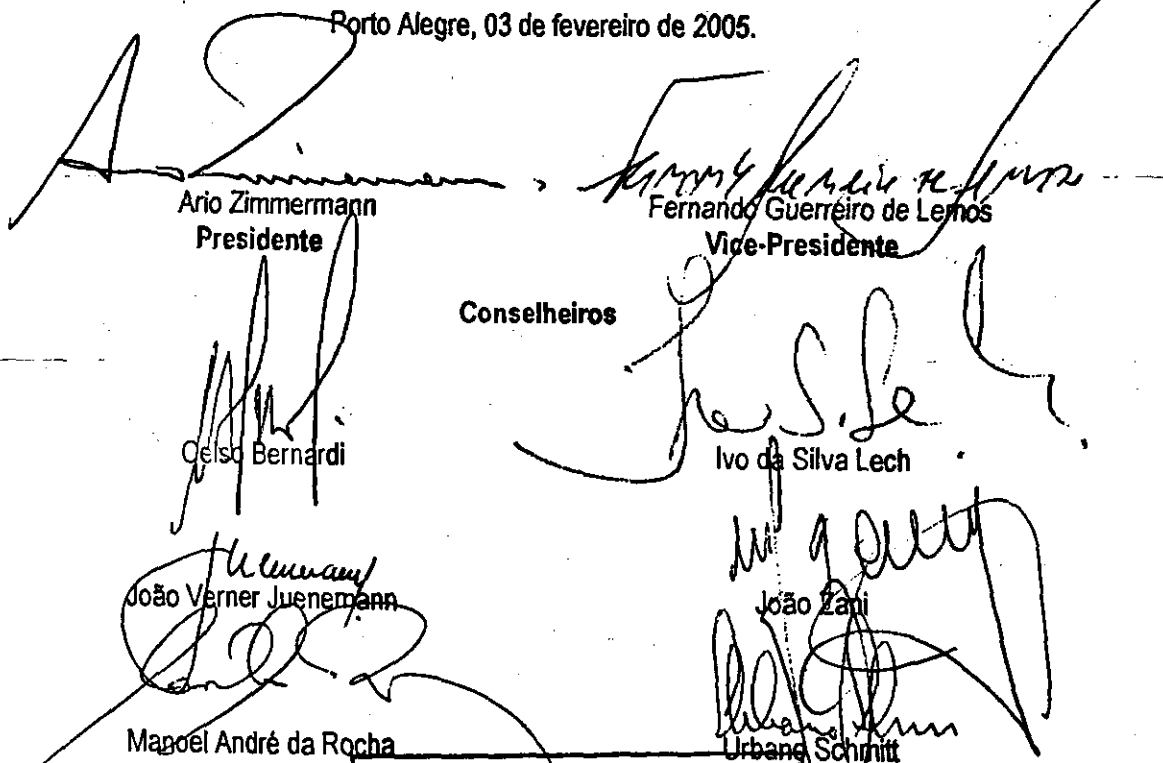 Porto Alegre, 03 de fevereiro de 2005.
Ario Zimmermann
Presidente
Fernando Guerreiro de Lemos
Vice-Presidente
Conselheiros
Celso Bernardi
Ivo da Silva Lech
João Verner Juenemann
João Zani
Manoel André da Rocha
Urbano Schmitt